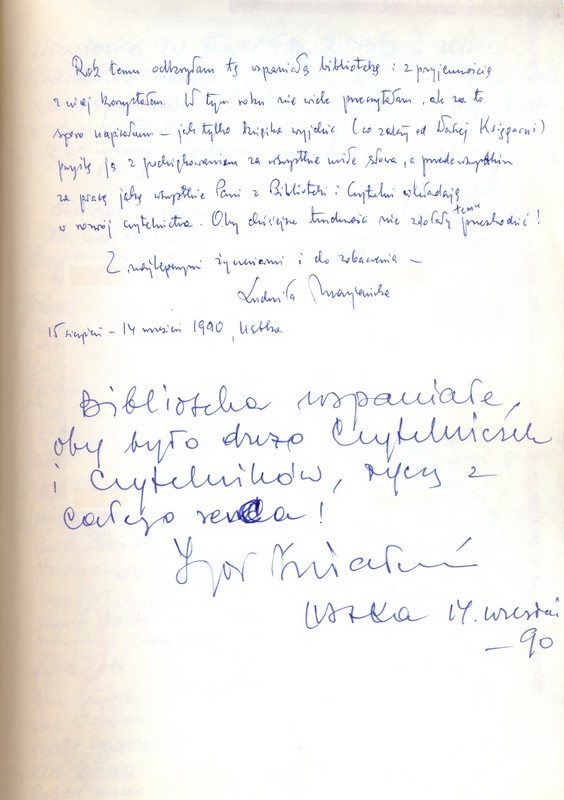 Rok temu odkryłam tę wspaniałą bibliotekę i z przyjemnością
z niej korzystałam. W tym roku nie wiele przeczytałam, ale za to
sporo napisałam – jak tylko książka wyjdzie (co zależy od Księgarni)
przyślę ją z podziękowaniem za wszystkie miłe słowa, a przede wszystkim
za pracę jaką wszystkie Panie z Biblioteki i Czytelni wkładają
w rozwój czytelnictwa. Oby dzisiejsze trudności nie zdołały temu przeszkodzić!
Z najlepszymi życzeniami i do zobaczenia –
Ludmiła Marjańska
15 sierpień – 14 wrzesień 1990, Ustka
Biblioteka wspaniała,
oby było dużo Czytelniczek
i Czytelników, życzę z
całego serca!
Igor
Ustka 14. wrzesień
– 90